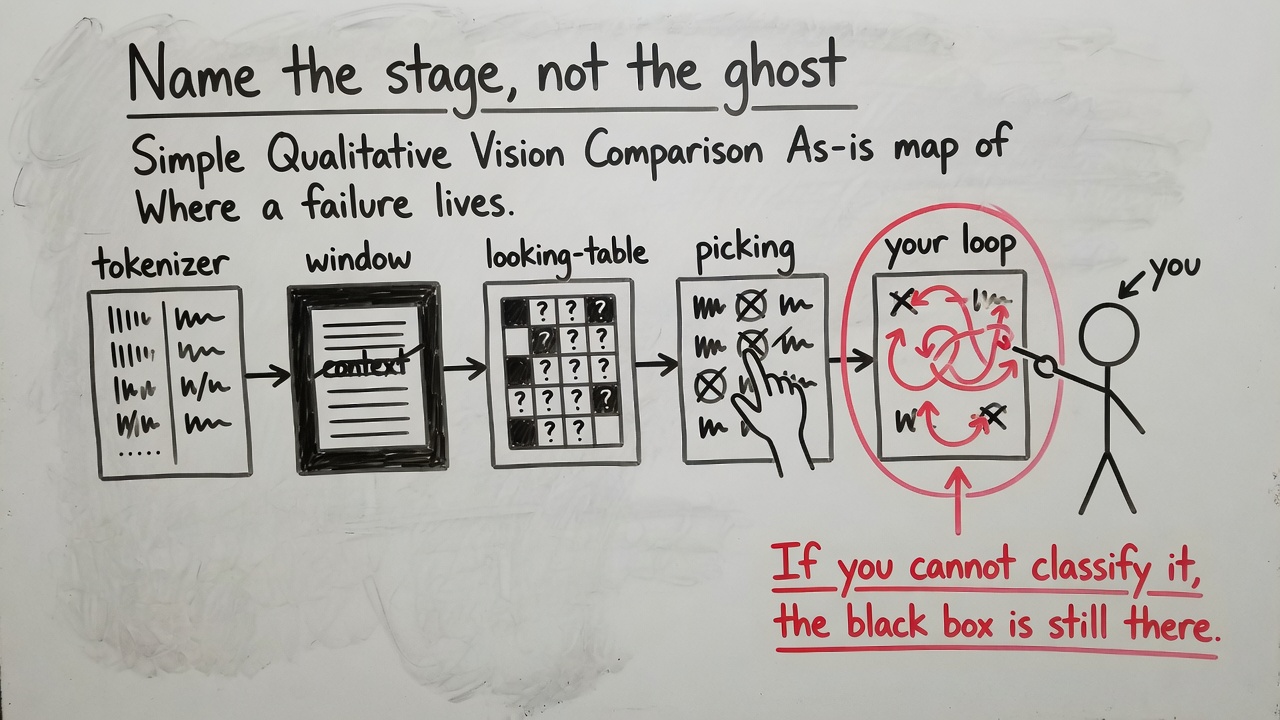 Name the stage, not the ghost
Simple Qualitative Vision Comparison As-is map of
Where a failure lives.
tokenizer
window
looking-table
picking
your loop
you
context
? ?
? ? ?
? ? ?
? ? ? ?
? ?
If you cannot classify it,
the black box is still there.